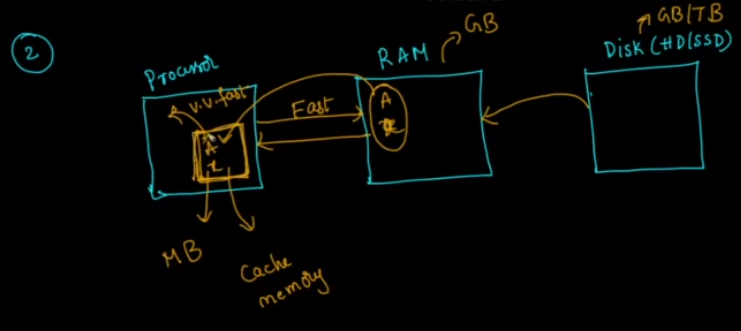 2
Processor
v.v.fast
A
x
MB
Cache
memory
Fast
RAM
GB
A
x
GB/TB
Disk (HD/SSD)